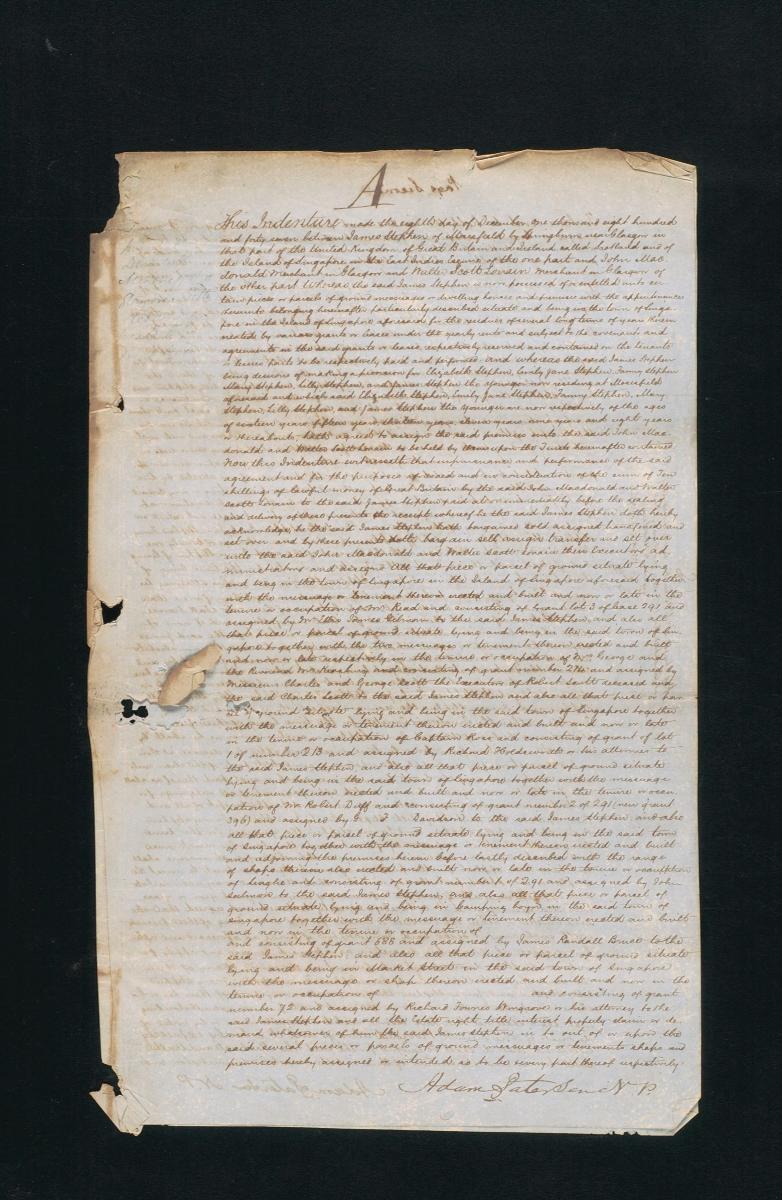 A
This Indenture made the eighth day of December one thousand eight hundred
and forty seven between James Stephen of by near Glasgow in
that part of the United Kingdom of Great Britain and Ireland called Scotland and of
the Island of Singapore in the East Indies Esquire of the one part and John Mac
donald Merchant in Glasgow and Walter Scott Lorrain Merchant in Glasgow of
the other part Whereas the said James Stephen is now possessed of or entitled unto cer
tain pieces or parcels of ground messuages or dwelling houses and premises with the appurtenances
thereunto belonging hereinafter particularly described situate and being in the town of Singa
pore in the Island of Singapore aforesaid for the residue of several long terms of years therein
created by various grants or leases under the yearly rents and subject to the covenants and
agreements in the said grants or leases respectively reserved and contained on the tenants
or lessees parts to be respectively paid and performed And whereas the said James Stephen
being desirous of making a provision for Elizabeth Stephen, Emily Jane Stephen, Fanny Stephen
Mary Stephen, Lilly Stephen, and James Stephen the younger now residing at
aforesaid and which said Elizabeth Stephen, Emily Jane Stephen, Fanny Stephen, Mary
Stephen, Lilly Stephen, and James Stephen the Younger are now respectively of the ages
of sixteen years fifteen years years years nine years and eight years
or thereabouts, hath agreed to assign the said premises unto the said John Mac
donald and Walter Scott Lorrain to be held by them upon the Trusts hereinafter contained
Now this Indenture witnesseth that in pursuance and performance of the said
agreement and for the purposes aforesaid and in consideration of the sum of Ten
shillings of lawful money of Great Britain by the said John Macdonald and Walter
Scott Lorrain to the said James Stephen paid at or immediately before the sealing
and delivery of these presents the receipt whereof he the said James Stephen doth hereby
acknowledge, he the said James Stephen hath bargained sold assigned transferred and
set over and by these presents doth bargain sell assign transfer and set over
unto the said John Macdonald and Walter Scott Lorrain their Executors ad
ministrators and assigns All that piece or parcel of ground situate lying
and being in the town of Singapore in the Island of Singapore aforesaid together
with the messuage or tenement thereon erected and built and now or late in the
tenure or occupation of Mr Read and consisting of Grant lot 3 of lease 291 and
assigned by Mr James Gilman to the said James Stephen, and also all
that piece or parcel of ground situate lying and being in the said town of Sin
gapore together with the two messuages or tenements thereon erected and built
and now or late respectively in the tenure or occupation of Mr George and
the Revd Mr Keasberry and consisting of grant number 276 and assigned by
Messieurs Charles and George Scott the Executors of Robert Scott deceased and
the said Charles Scott to the said James Stephen and also all that piece or par
cel of ground situate lying and being in the said town of Singapore together
with the messuage or tenement thereon erected and built and now or late
in the tenure or occupation of Captain Ross and consisting of grant of lot
1 of number 213 and assigned by Richard Holdsworth or his attornies to
the said James Stephen and also all that piece or parcel of ground situate
lying and being in the said town of Singapore together with the messuage
or tenement thereon erected and built and now or late in the tenure or occu
pation of Mr Robert Duff and consisting of grant number 2 of 291 (new grant
396) and assigned by G. F. Davidson to the said James Stephen and also
all that piece or parcel of ground situate lying and being in the said town
of Singapore together with the messuage or tenement thereon erected and built
and adjoining the premises herein before lastly described with the range
of shops thereon also erected and built now or late in the tenure or occupation
of and consisting of grant number 1 of 291 and assigned by John
Salmon to the said James Stephen, and also all that piece or parcel of
ground situate lying and being in Campong in the said town of
Singapore together with the messuage or tenement thereon erected and built
and now in the tenure or occupation of
and consisting of grant 686 and assigned by James Randall Bruce to the
said James Stephen: and also all that piece or parcel of ground situate
lying and being in Market Street in the said town of Singapore
with the messuage or shop thereon erected and built and now in the
tenure or occupation of and consisting of grant
number 72 and assigned by Richard Townes or his attorney to the
said James Stephen and all the Estate right title interest property claim or de
mand whatsoever of him the said James Stephen in to out of or upon the
said several pieces or parcels of ground messuages or tenements shops and
premises hereby assigned or intended so to be every part thereof respectively
Adam Paterson N. P.